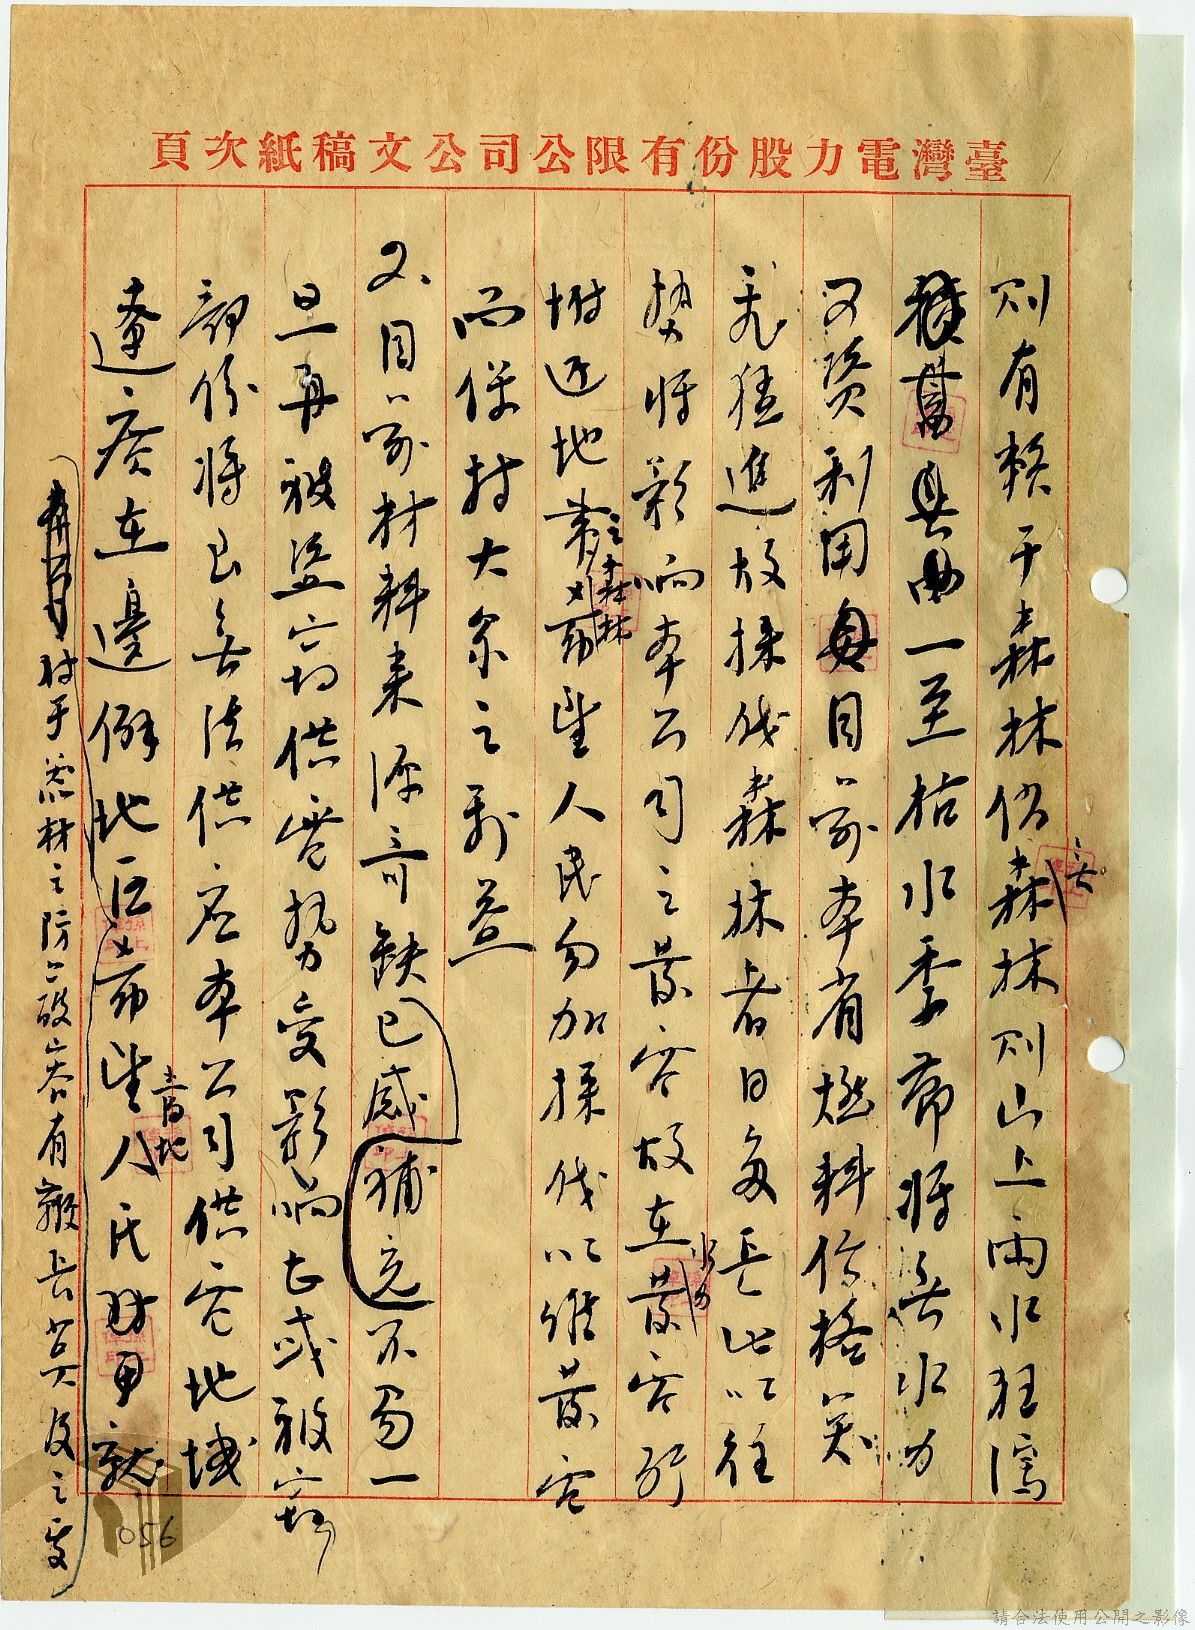 臺灣電力股份有限公司公文稿紙次頁
則有賴于森林倘無森林則山上雨水狂瀉
一至枯水季節將無水力
可資利用目前本省燃料價格突
飛猛進故採伐森林者日多長此以往
勢將影响本公司之發電故在水力發電所
附近地帶之森林希望人民勿加採伐以維發電
而保持大眾之利益
又目前材料來源奇缺已感補充不易一
旦再被盜竊供電勢受影响甚或被竊
部份將已無法供应本公司供電地域
遼濶在邊僻地区希望當地人民
對于器材之防護容有鞭長莫及之處
056
請合法使用公開之影像